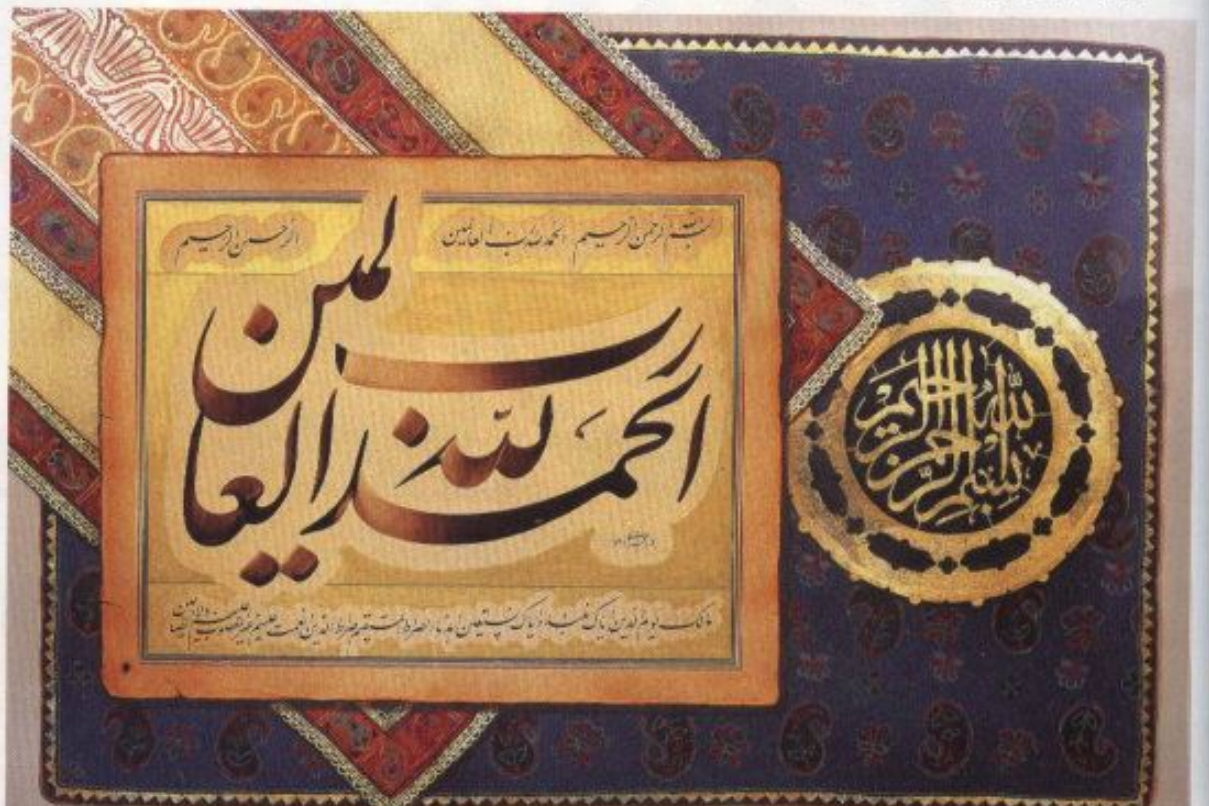 بسم الله الرحمن الرحیم الحمد لله رب العالمین
الرحمن الرحیم
الحمد لله رب العالمین
مالک یوم الدین ایاک نعبد و ایاک نستعین اهدنا الصراط المستقیم صراط الذین انعمت علیهم غیر المغضوب علیهم ولا الضالین
بسم الله الرحمن الرحیم